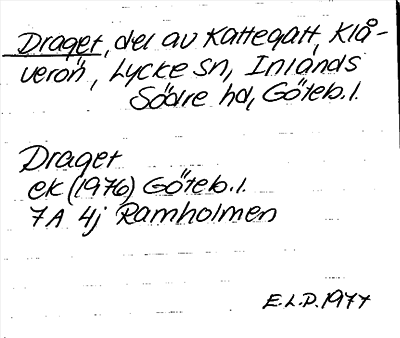 Draget, del av Kattegatt, Klå-
verön, Lycke sn, Inlands
Södre hd, Göteb.l.
Draget
ek (1976) Göteb.l.
7A 4j Ramholmen
E.L.P. 1977